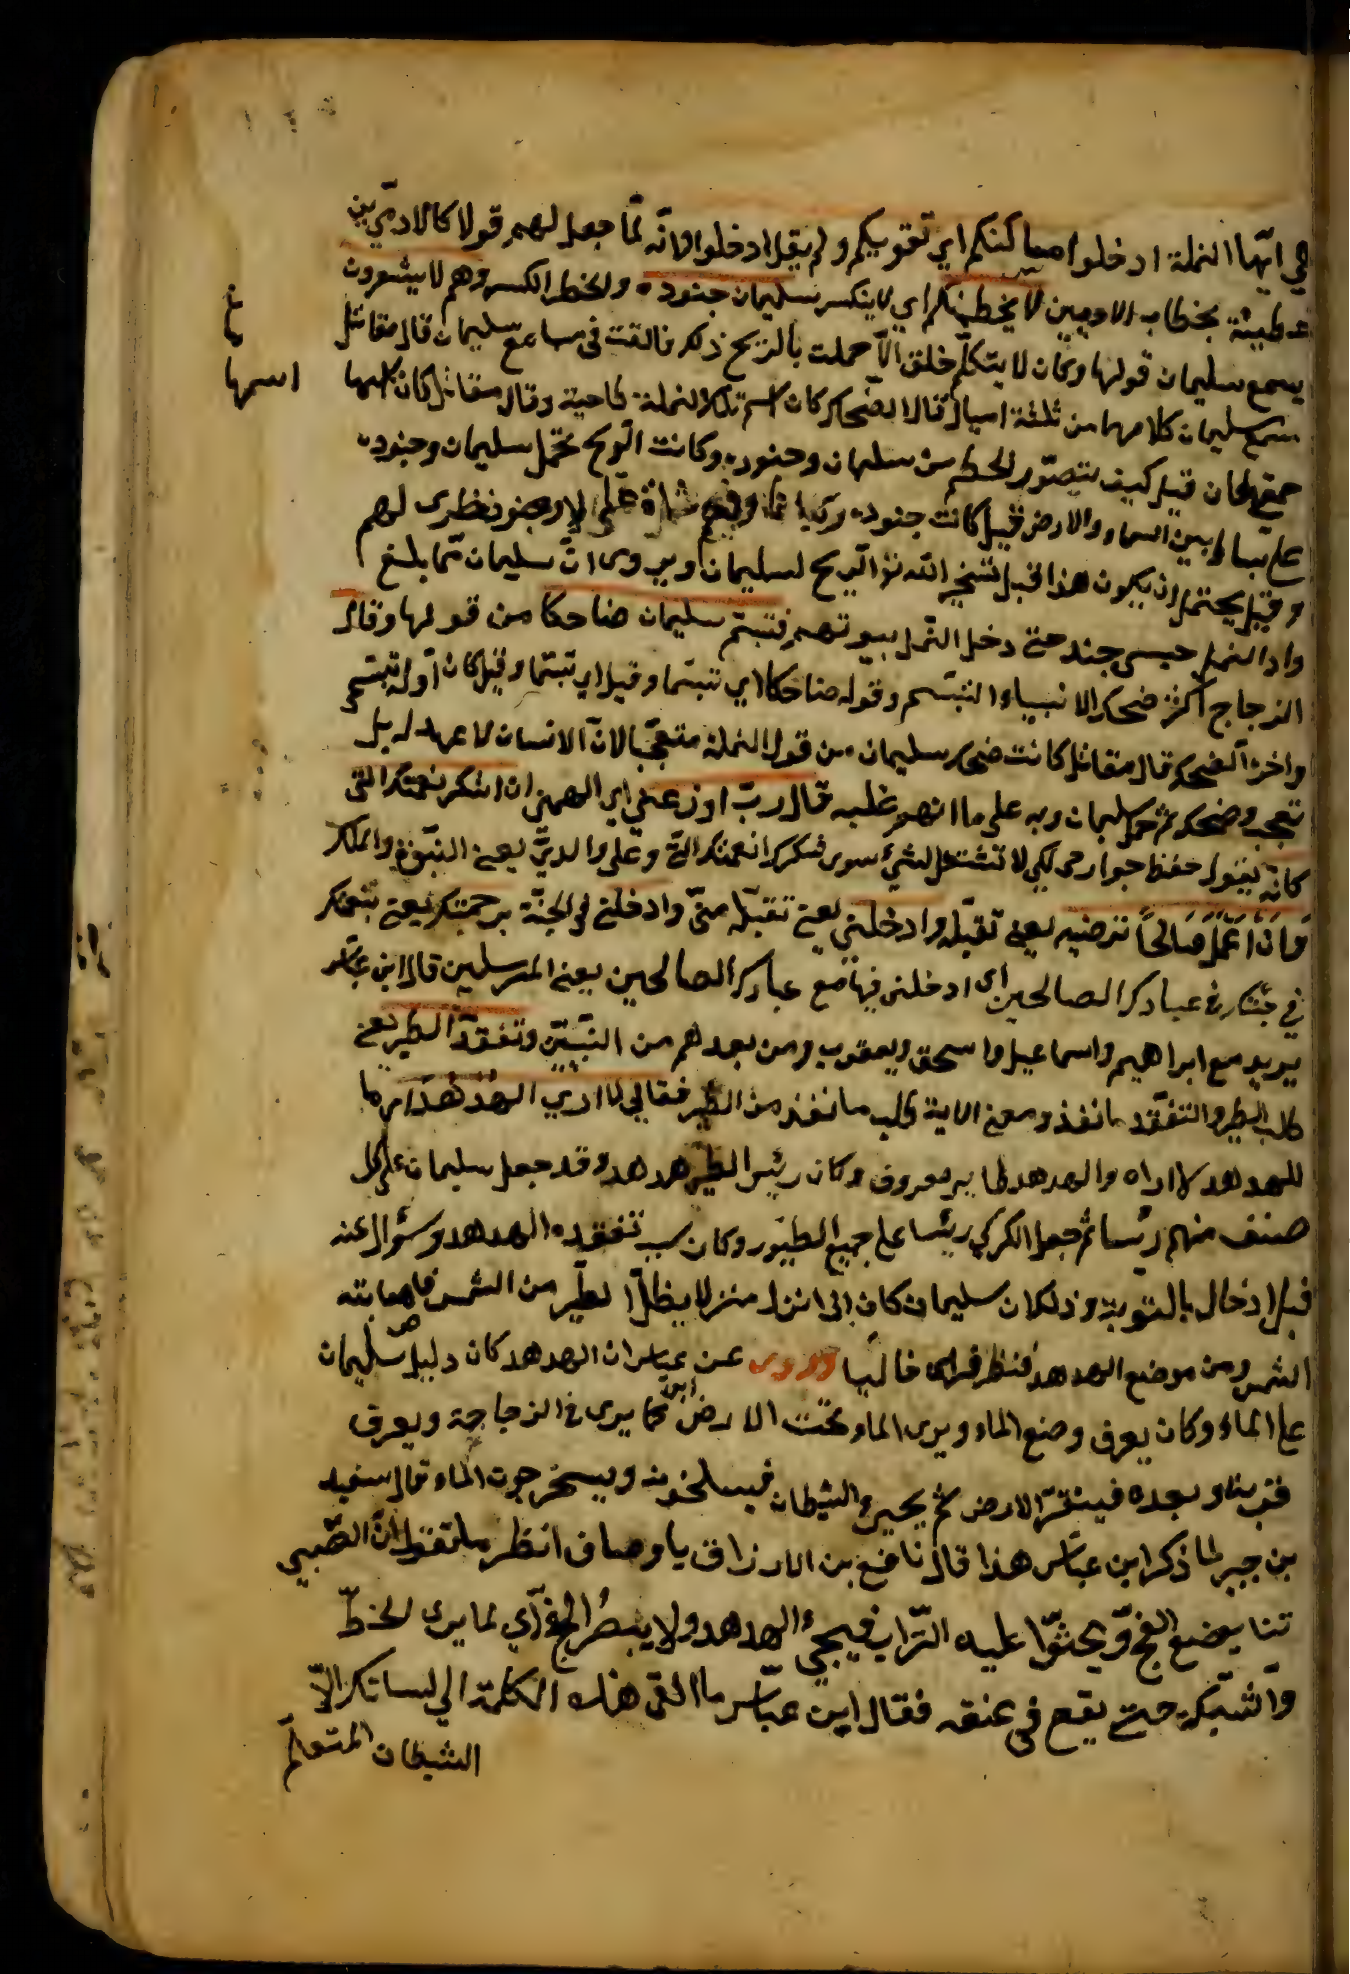 هي ايّها النملة ادخلوا مساكنكم اي تقوبيكم ولم يقل ادخلوا لانّه لمّا جعل لهم قولا كالادميّين
بخطاب الادميين لا يحطمنّكم اي لا يكسرنكم سليمان جنوده والحطم الكسر وهم لا يشعرون
يسمع سليمان قولها وكان لا يتكلّم خلق الّا حملت بالريح ذلك فالقت في مسامع سليمان قال مقاتل
سمع سليمان كلامها من ثلثة اميال قال الضّحاك كان اسم تلك النملة طاحية وقال مقاتل كان اسمها
اسمها
قيل كيف يتصوّر الحطم من سليمان وجنوده وكانت الريح تحمل سليمان وجنوده
على بساط بين السماء والارض قيل كانت جنوده ركبانا وفيهم مشاة على الارض تطوى لهم
وقيل يحتمل ان يكون هذا قبل تسخير الله تع الريح لسليمان ويروى انّ سليمان لمّا بلغ
واد النمل حبس جند حتى دخل النّمل بيوتهم فتبسّم سليمان ضاحكا من قولها وقال
الزجاج اكثر ضحك الانبياء التبسّم وقوله ضاحكا اي تبسّما وقيل اي تبسّما وقيل كان اوله تبسّم
واخره الضحك قال مقاتل كانت ضحك سليمان من قول النملة متعجّبا لانّ الانسان لا عهد له بل
تعجب وضحك ثم حمد سليمان ربه على ما انعم عليه قال ربّ اوزعني اي الهمني ان اشكر نعمتك التي
كانّه يقول حفظ جوارحى لكي لا تشتغل لشيء سوى شكرك انعمتك الّتي وعلى والديّ يعنى النبّوة والملك
وان اعمل صالحًا ترضيه يعني تقبّله وادخلني يعني تقبّله منّي وادخلني في الجنّة برحمتك يعني بنعمتك
في جنّتك في عبادك الصالحين اى ادخلني فيها مع عبادك الصالحين يعنى المرسلين قال ابن عبّاس
يريد مع ابراهيم واسماعيل واسحق ويعقوب ومن بعدهم من النبّيّين وتفقدّ الطير يعني
طلب الطير والتفقّد ما نفذ ومعنى الاية طلب ما نفذ من الطير فقال مالي لا ارى الهدهد اي ما
للهدهد لا اراه والهدهد طاير معروف وكان رئيس الطير هدهد وقد جعل سليمان على كل
صنف منهم رئسا ثم جعل الكركي رئيسا على جميع الطيور وكان سبب تفقده الهدهد وسؤال عنه
قيل ادخال بالنوبة وذلك ان سليمان كان اذا نزل منزلا يظلّ الطير من الشمس فاصابته
الشمس ومن موضع الهدهد فنظر فراى خاليا وروى عن ابن عباس ان الهدهد كان دليل سليمان
على الماء وكان يعرف وضع الماء ويرى الماء تحت الارض كما يرى في الزجاجة ويعرف
قربه وبعده فينقر الارض ثم يجيئ الشيطان فيسلخونه ويستخرجون الماء قال سعيد
بن جبير لما ذكر ابن عبّاس هذا قال نافع بن الازرق يا وصاف انظر ما تقول انّ الصّبي
تنا يوضع الفخّ ويحثّوا عليه التّراب فيجيء الهدهد ولا يبصُر الفخّ اي لما يرى الخطّ
والشّبكة حتى يقع في عنقه فقال ابن عبّاس ما القى هذه الكلمة الى لسانك الاّ
الشيطان المتعلّم